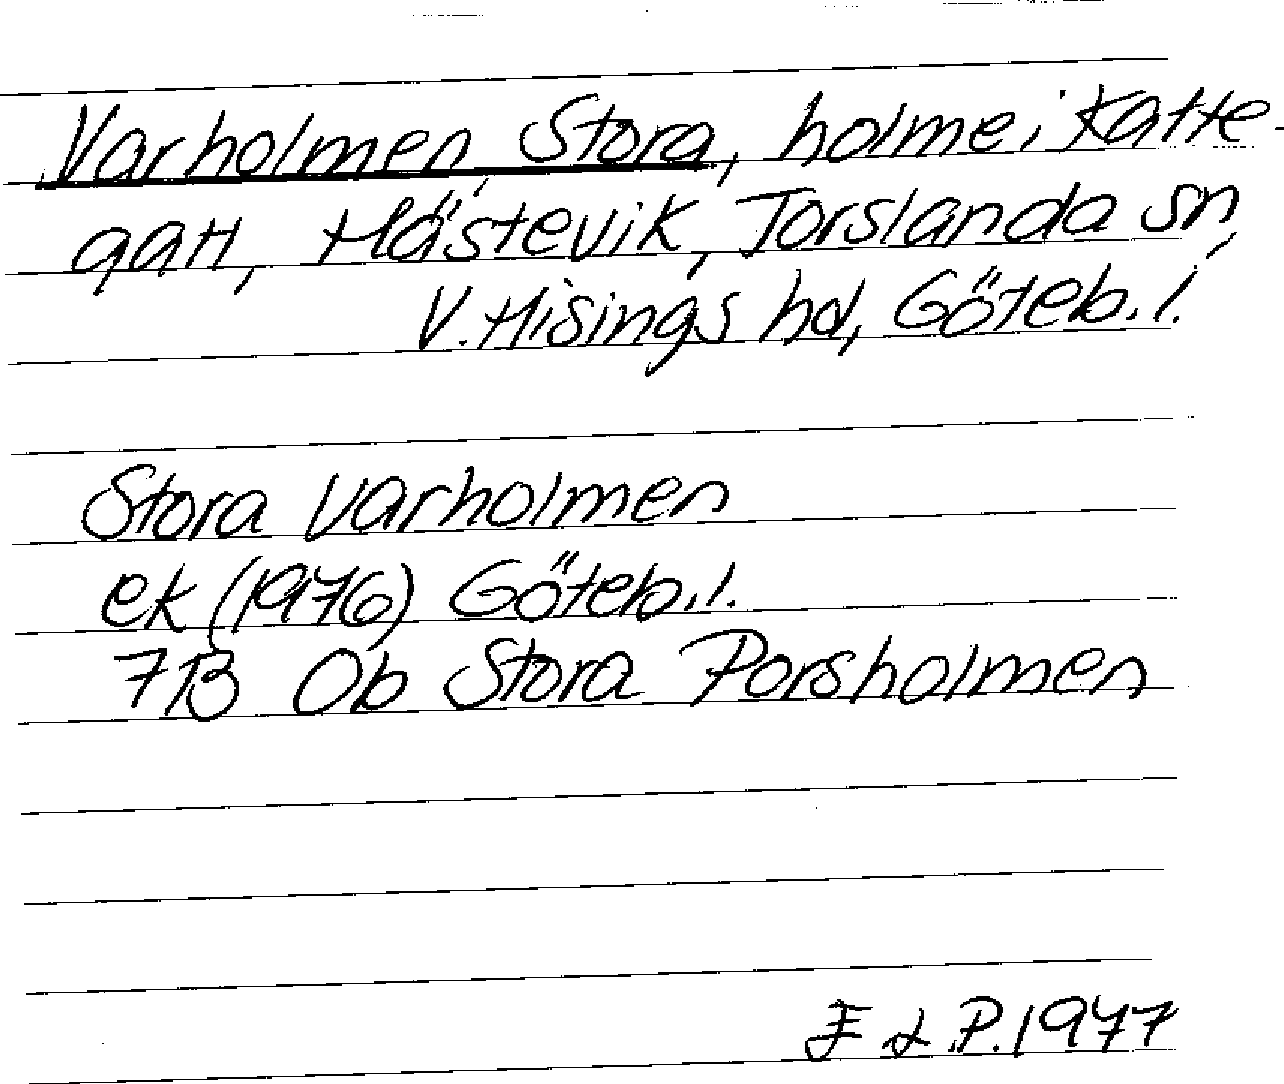 Varholmen, Stora, holme i Katte-
gatt, Hästevik, Torslanda sn,
V. Hisings hd, Göteb. l.
Stora Varholmen
ek (1976) Göteb. l.
7B Ob Stora Porsholmen
P. 1977